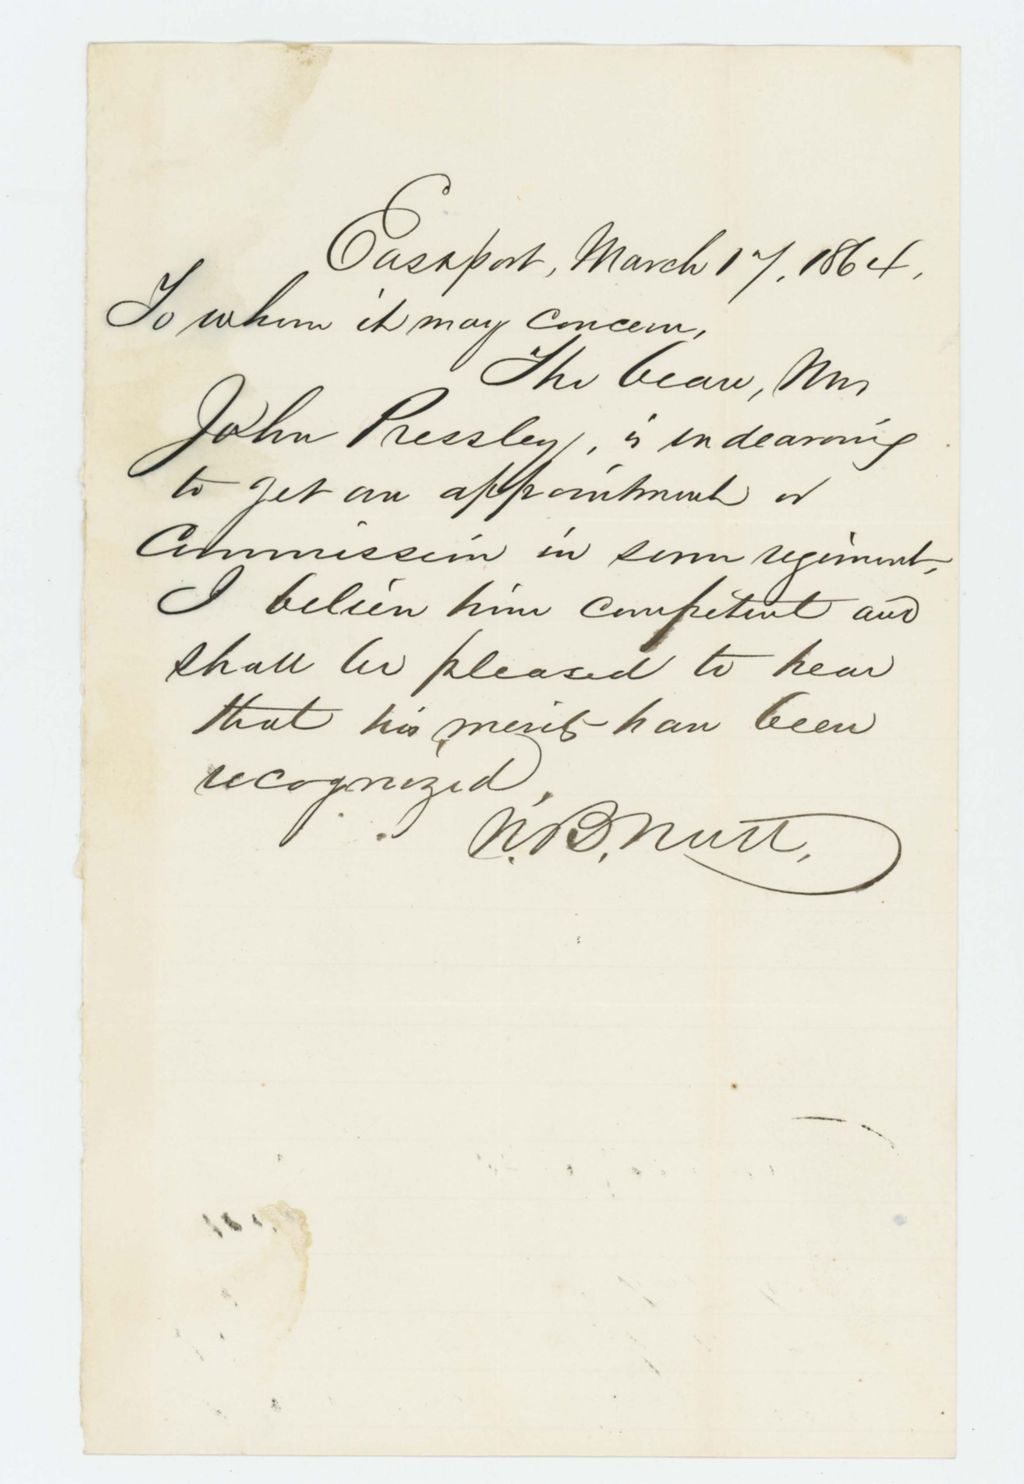 Eastport, March 17, 1864.
To whom it may concern,
The bearer, Mr
John Pressley, is endeavoring
to get an appointment or
Commission in some regiment.
I believe him competent and
shall be pleased to hear
that his merits have been
recognized.
N. B. Nutt.